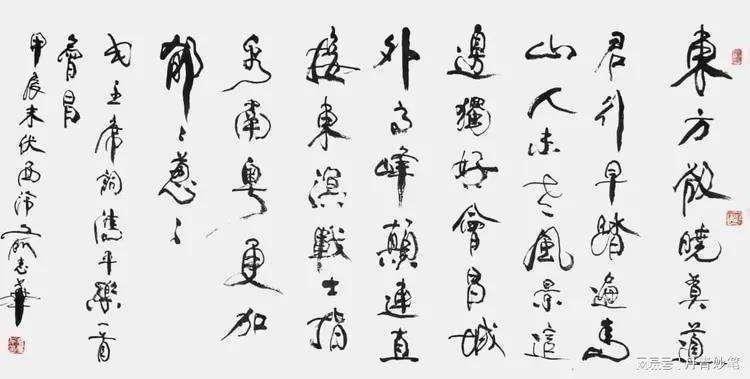 東方欲曉莫道
君行早踏遍青
山人未老風景這
邊獨好會昌城
外高峰顛連直
接東溟戰士指
看南粵更加
郁〻蔥〻
毛主席詞清平樂一首
會昌
甲辰末伏 志華
搜狐号@丹青妙笔